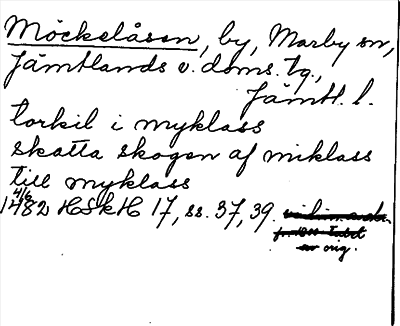 Möckelåsen, by, Marby sn,
Jämtlands v. doms. tg.,
Jämtl. l.
torkil i myklass
skatta skogen af miklass
till myklass
4/6
1482 HSkH 17, ss. 37, 39.
orig.